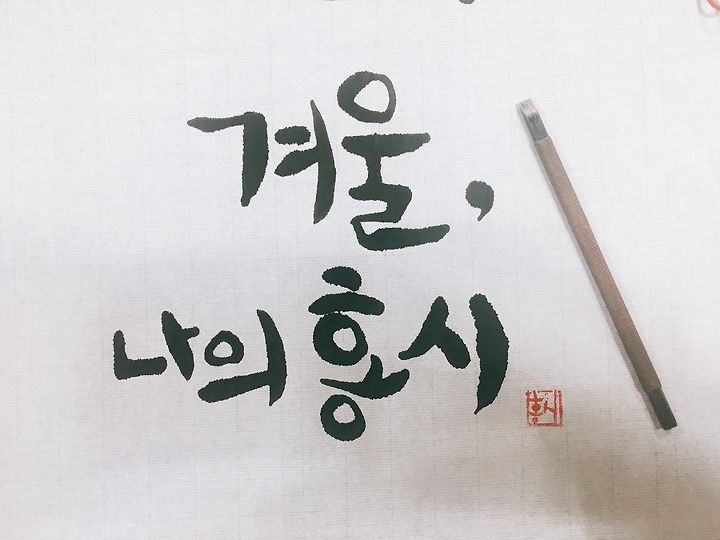 겨울,
나의 홍시